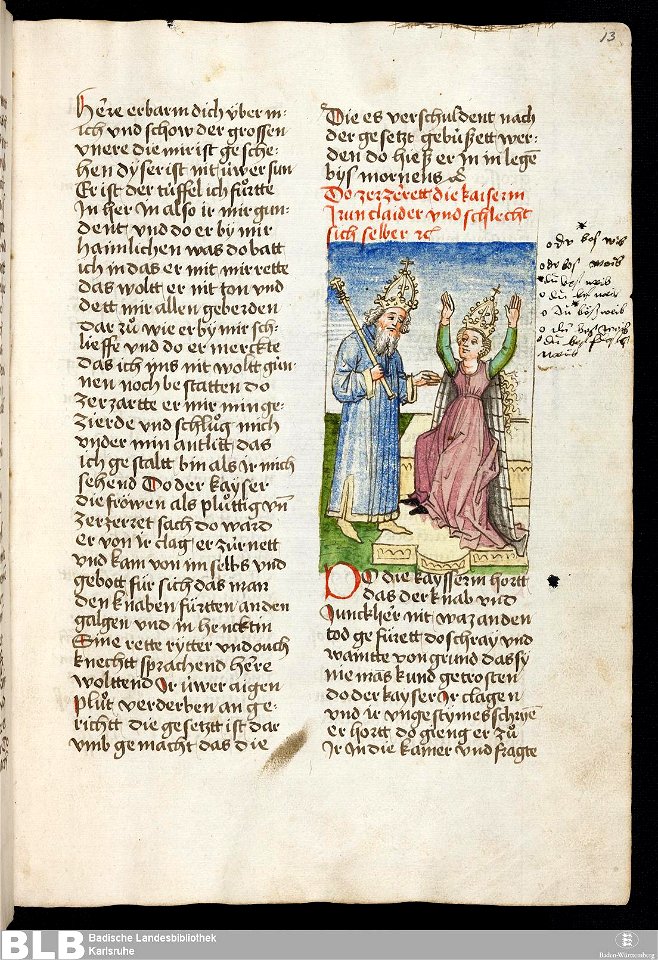 13
Herre erbarm dich über m=
ich vnd schow der grossen
vnere die mir ist gesche=
hen dyser ist nit üwer sun
Er ist der tüffel ich fürtte
In her In also ir mir gun=
dent vnd do er by mir
haimlichen was do batt
ich in das er mit mir rette
das woltt er nit ton vnd
dett mir allen geberden
dar zů wie er by mir sch=
lieffe vnd do er merckte
das ich ims nit woltt gün=
nen noch bestatten do
zerzartte er mir min ge=
zierde vnd schlůg mich
vnder min antlitt das
ich gestaltt bin als ir mich
sehend Do der kayser
die fröwen als plůttig vn̄
zerzerret sach do ward
er von ir clag er zürnett
vnd kam von im selbs vnd
gebott für sich das man
den knaben fürtten an den
galgen vnd in hencktin
Eine rette rytter vnd ouch
knechtt sprachend herre
wolttend Ir üwer aigen
plůt verderben an ge=
richtt die gesetzt ist dar
vmb gemacht das die
Die es verschuldent nach
der gesetzt gebůssett wer=
den do hiess er in in legē
bys mornens ꝛc
Do zerzerrett die kaiserin
Irun claider vnd schlecht
sich selber ꝛc
o du bos wib
DO die kaysserin hortt
das der knab vnd
Iunckher nit waz an den
tod gefürett do schray vnd
wainte von grund das sy
nie mas kund getrosten
do der kayser Ir clagen
vnd ir vngestymes schryē
er hortt do gieng er zů
Ir In die kamer vnd fragte
BLB
Badische Landesbibliothek
Karlsruhe
Baden-Württemberg